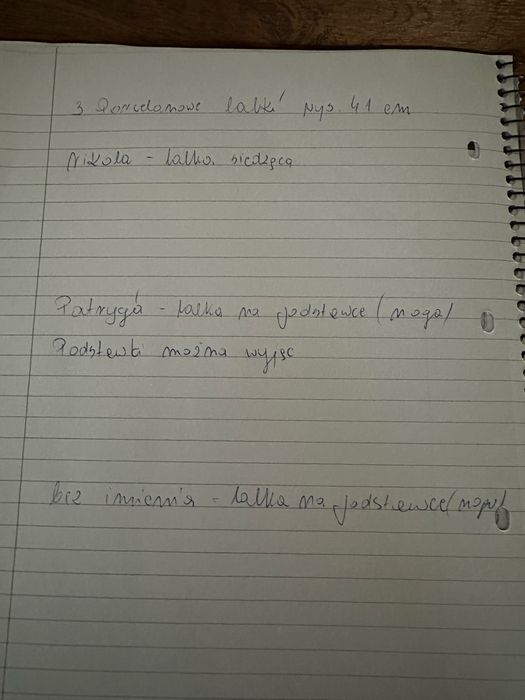 3 Porcelanowe lalki wys. 41 cm
Nikola - lalka siedząca
Patrycja - lalka na podstawce (noga)
Podstawki można wyjąć
bez imienia - lalka na podstawce (noga)